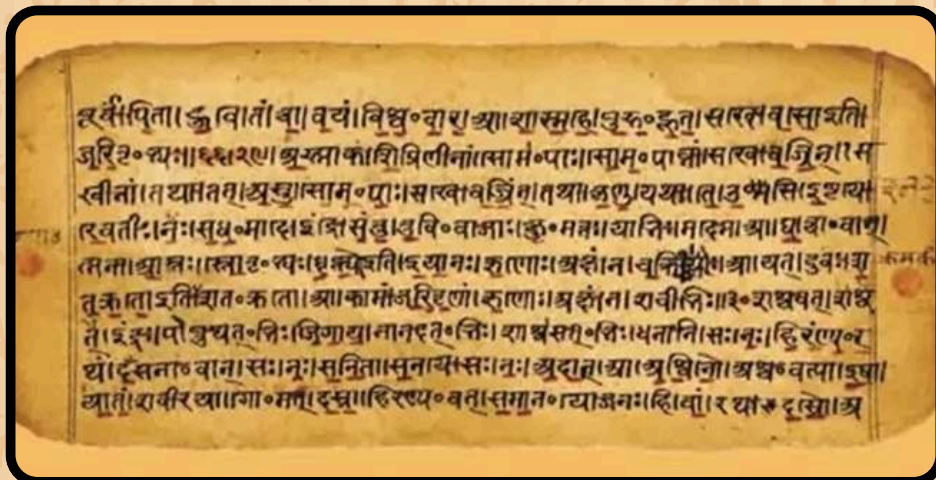 पूर्वं।पिता।हुवे।तं।त्वा।वयं।विश्व॰वार।आ।शास्महे।पुरु॰हूत।सखे।वसो॒इति।
जरितृ॰भ्यः॥अस्माकं।शिप्रिणीनां।सोम॰पाः।सोम॰पाव्नां।सखे।वज्रिन्।स
खीनां।तथा।तत्।अस्तु।सोम॰पाः।सखे।वज्रिन्।तथा।कृणु।यथा।ते।उश्मसि।इष्टये॥
रेवतीः।नः।सध॰मादे।इंद्रे।संतु।तुवि॰वाजाः।क्षु॰मंतः।याभिः।मदेम॥आ।घ।त्वा॰वान्।
त्मना।आप्तः।स्तोतृ॰भ्यः।धृष्णो इति।इयानः।ऋणोः।अक्षं।न।चक्र्योः॥आ।यत्।दुवः।श
तक्रतो इति शत॰क्रतो।आ।कामं।जरितॄणां।ऋणोः।अक्षं।न।शचीभिः॥३॰शश्वत्।इंद्र
नं।इंद्रः।पोप्रुथत्॰भिः।जिगाय।नानदत्॰भिः।शाश्वसत्॰भिः।धनानि।सः।नः।हिरण्य॰र
थं।दंसना॰वान्।सः।नः।सनिता।सनये।सः।नः।अदात्॥आ।अश्विनौ।अश्व॰वत्या।इषा।
यातं।शवीरया।गो॰मत्।दस्रा।हिरण्य॰वत्॥समान॰योजनः।हि।वां।रथः।दस्रौ।अ